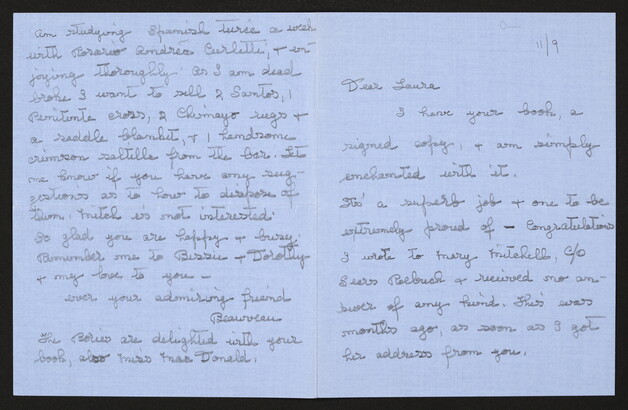 11/9
Dear Laura
I have your book, a
signed copy, & am simply
enchanted with it.
Its' a superb job & one to be
extremely proud of – Congratulations
I wrote to Mary Mitchell, C/O
Sears Roebuck & recieved no an-
swer of any kind. This was
months ago, as soon as I got
her address from you.
am studying Spanish twice a week
with Rosario Andrea Curletti, & en-
joying thoroughly. As I am dead
broke I want to sell 2 Santos, 1
Penitente cross, 2 Chimayo rugs &
a saddle blanket, & 1 handsome
crimson saltillo from the bar. Let
me know if you have any sug-
gestions as to how to dispose of
them. Mitch is not interested.
So glad you are happy & busy.
Remember me to Bessie & Dorothy
& my love to you –
ever your admiring friend
Beauveau
The Bories are delighted with your
book, also Miss Mac Donald.